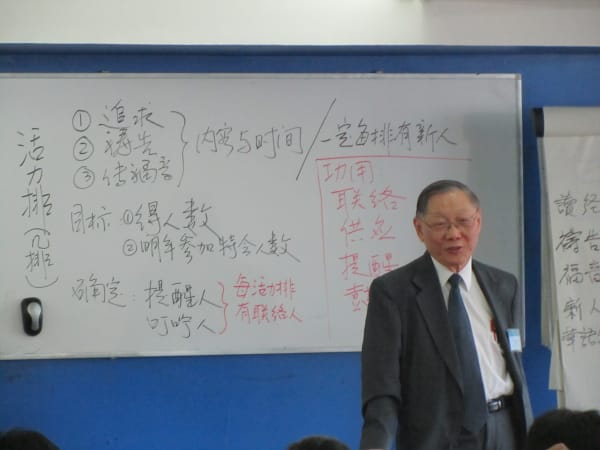 活力排(几排)
① 追求
② 祷告
③ 传福音
内容与时间
一定每排有新人
目标: ①得人数
②明年参加特会人数
确定: 提醒人
叮咛人
每活力排
有联络人
功用:
联络
供应
提醒
讀经
禱告
福音
新人